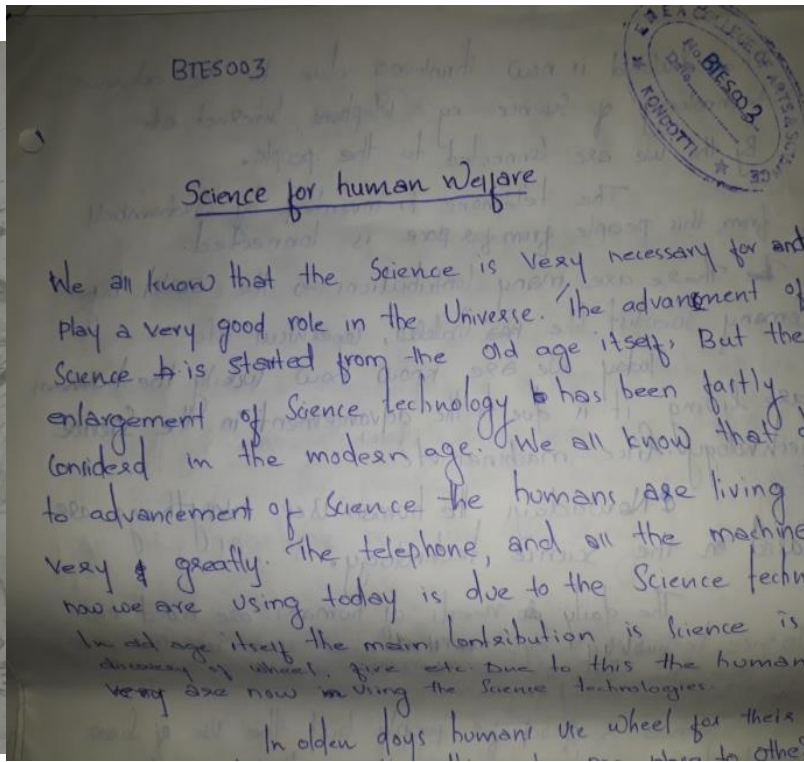 BTES003
EMEA COLLEGE OF ARTS & SCIENCE
KONDOTTI
No. BTES003
Date
Science for human Welfare
We all know that the Science is very necessary for and
play a very good role in the Universe. The advancment of
Science is started from the old age itself. But the
enlargement of Science technology has been fastly
considerd in the modern age. We all know that
to advancement of Science the humans are living
very greatly. The telephone, and all the machine
now we are using today is due to the Science techn
In old age itself the main contribution is Science is
discovery of wheel, fire etc. Due to this the human
very are now in using the Science technologies.
In olden days humans use wheel for their
place to othe